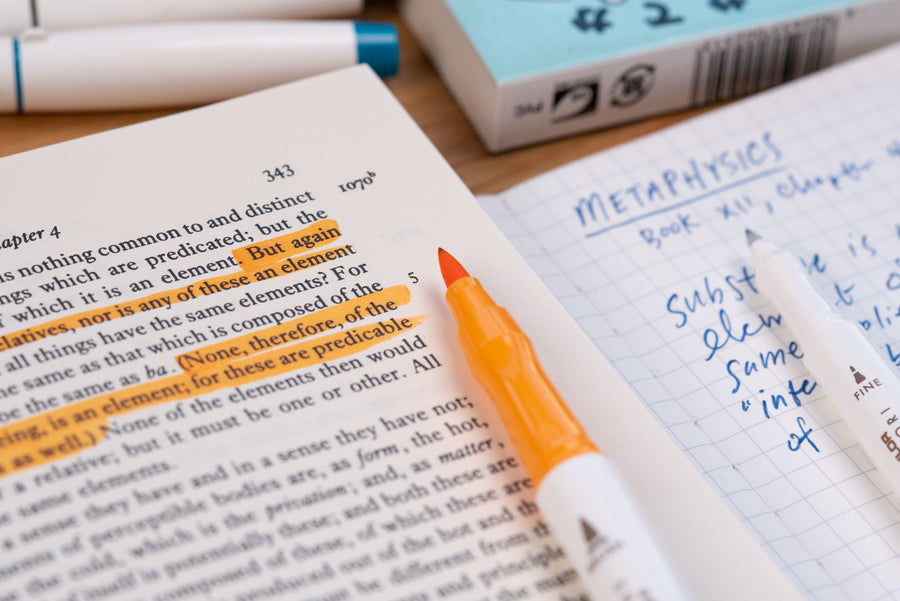 # 2 #
343
1070b
apter 4
is nothing common to and distinct
ngs which are predicated; but the
which it is an element. But again
elatives, nor is any of these an element
all things have the same elements? For
5
e same as that which is composed of the
be the same as ba. (None, therefore, of the
eing, is an element; for these are predicable
s as well.) None of the elements then would
r a relative; but it must be one or other. All
same elements.
a sense they have and in a sense they have not;
of perceptible bodies are, as form, the hot,
the cold, which is the privation; and, as matter,
of itself is potentially these; and both these are
composed of these, of which these are
produced out of the hot and the
must be different from
and principle
METAPHYSICS
Book XII, Chapter
subst e is
elem t
same
"inte
of
FINE